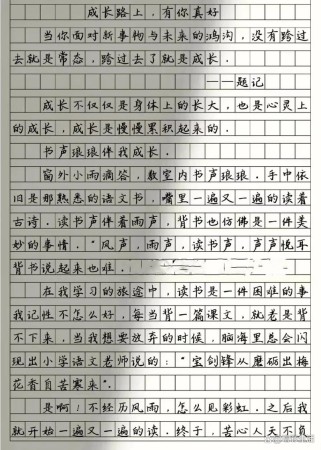 成长路上，有你真好
当你面对新事物与未来的鸿沟，没有跨过
去就是常态，跨过去了就是成长．
——题记
成长不仅仅是身体上的长大，也是心灵上
的成长，成长是慢慢累积起来的．
书声琅琅伴我成长．
窗外小雨滴答，教室内书声琅琅，手中依
旧是那熟悉的语文书，嘴里一遍又一遍的读着
古诗．读书声伴着雨声，背书也仿佛是一件美
妙的事情．“风声，雨声，读书声，声声悦耳
背书说起来也难．
在我学习的旅途中，读书是一件困难的事
我记性不怎么好，每当背一篇课文，就老是背
不下来，当我想要放弃的时候，脑海里总会闪
现出小学语文老师说的：“宝剑锋从磨砺出梅
花香自苦寒来”．
是啊！不经历风雨，怎么见彩虹．之后我
就开始一遍又一遍的读．终于，苦心人天不负